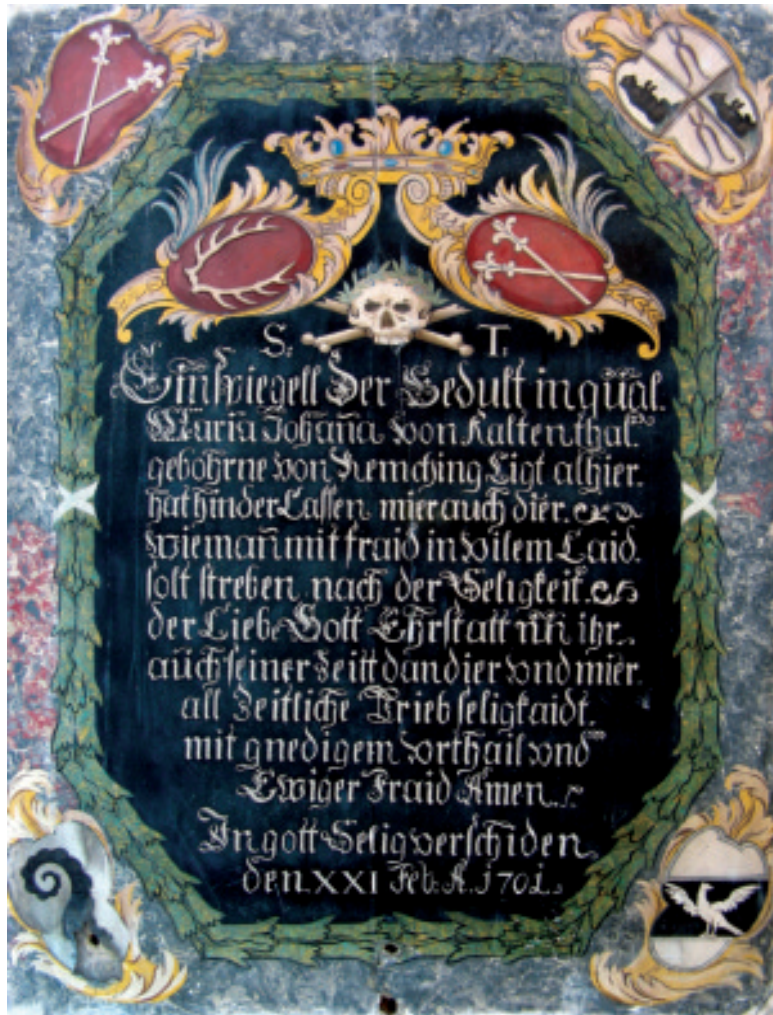 S. T.
Ein spiegell der Gedult in qual.
Maria Johaña von Kaltenthal.
gebohrne von Remching Ligt alhier.
hat hinder Lassen mier auch dier.
wie mañ mit fraid in vilem Laid.
solt streben nach der Seligkeit.
der Liebe Gott Ehrstatt nũ ihr.
auch seiner Zeitt dan dier vnd mier.
all Zeitliche Triebseligkaidt.
mit gnedigem vrthail vnd
Ewiger Fraid Amen.
In gott Selig verschiden
den XXI Feb: A. 1701.